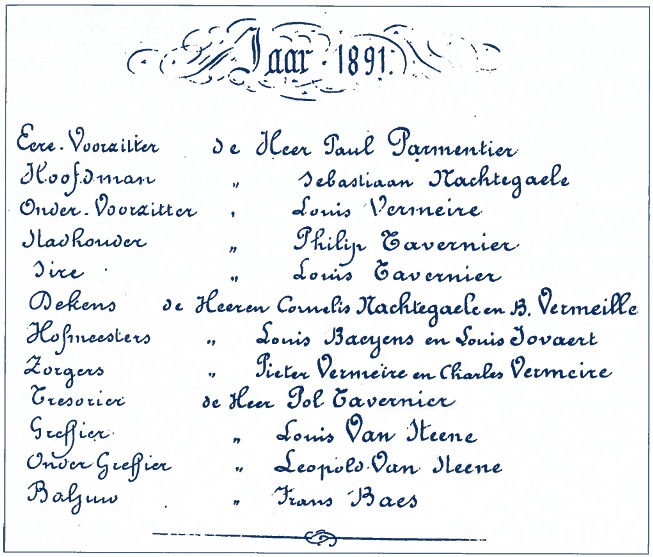 Jaar 1891.
Eere-Voorzitter de Heer Paul Parmentier
Hoofdman „ Sebastiaan Nachtegaele
Onder-Voorzitter „ Louis Vermeire
Stadhouder „ Philip Tavernier
Sire „ Louis Tavernier
Dekens de Heeren Cornelis Nachtegaele en B. Vermeille
Hofmeesters „ Louis Baeyens en Louis Jovaert
Zorgers „ Pieter Vermeire en Charles Vermeire
Tresorier de Heer Pol Tavernier
Greffier „ Louis Van Steene
Onder Greffier „ Leopold Van Steene
Baljuw „ Frans Baes